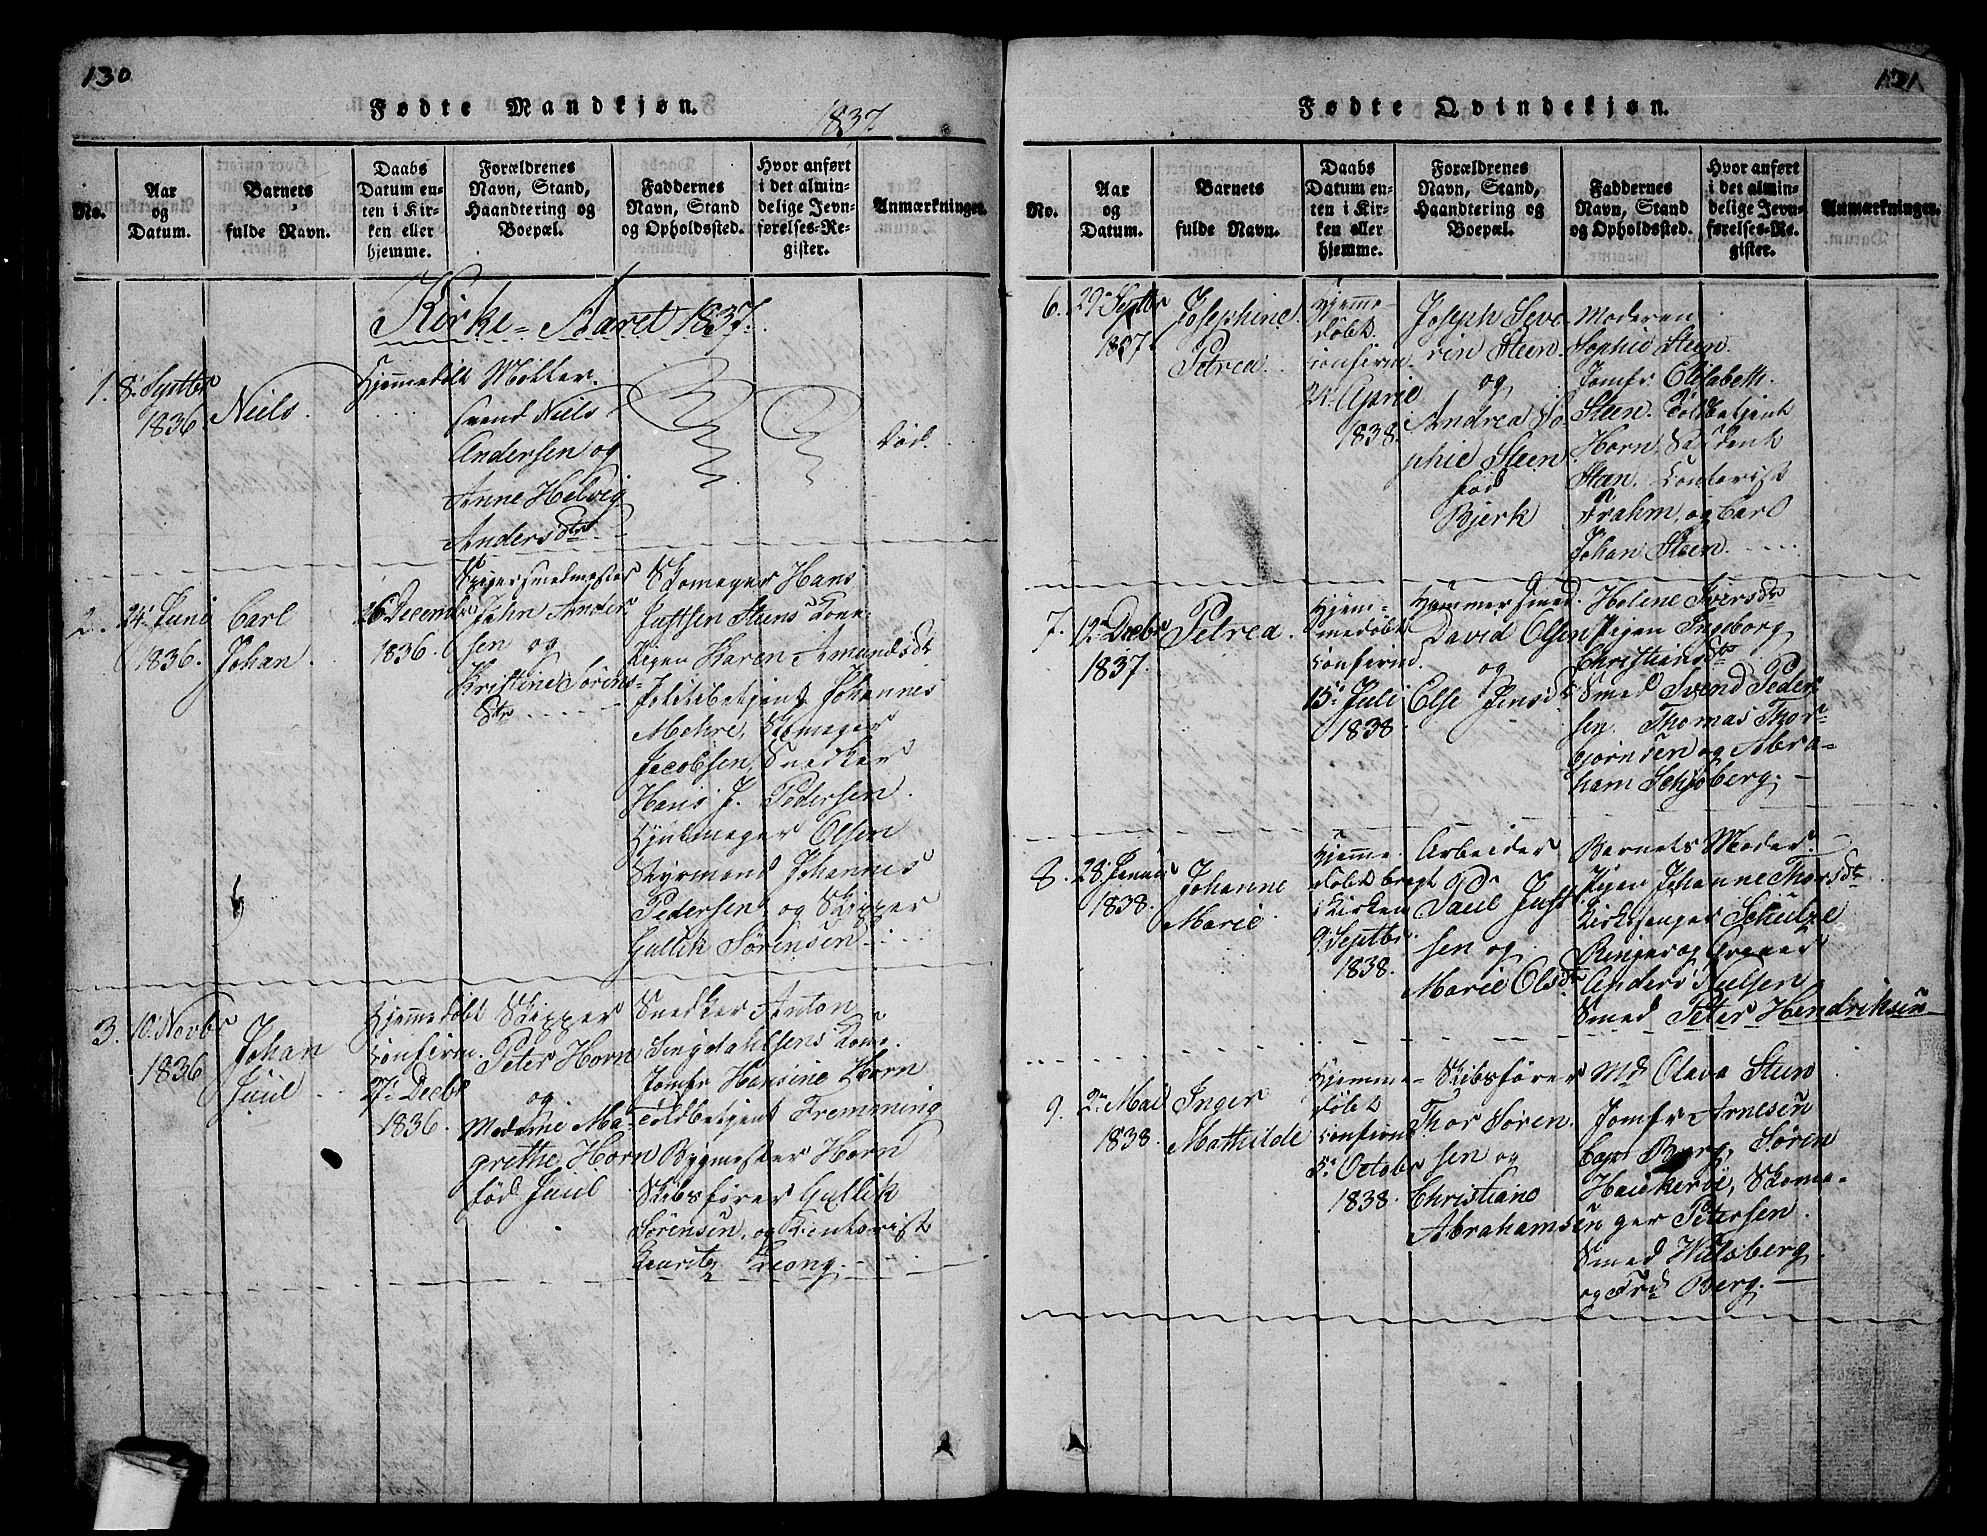 130
Fødte Mandkjøn.
1837
No.
Aar
og
Datum.
Barnets
fulde Navn.
Daabs
Datum en-
ten i Kir-
ken eller
hjemme.
Forældrenes
Navn, Stand,
Haandtering og
Boepæl.
Faddernes
Navn, Stand
og Opholdssted.
Hvor anført
i det almin-
delige Jevn-
førelses-Re-
gister.
Anmærkninger.
Kirke-Aaret 1837.
1.
8. Septbr
1836
Niels.
Hjemmedøbt
Møller
svend Niels
Andersen og
Anne Helvig
Andersdtr
død.
2.
24. Juni
1836.
Carl
Johan
26 December
1836.
Spigersmedmester
John Ander-
sen og
Kristine Sørens-
dtr
Skomager Hans
Justsen Steens Kone
Pigen Karen Amundsdtr
Politibetjent Johannes
Mehre, Skomager
Jacobsen, Snedker
Hans J. Pedersen.
Hjulmager Olsen
Styrmand Johannes
Pedersen og Skipper
Gullik Sørensen.
3.
10. Novbr
1836
Johan
Juul
Hjemmedøbt
Confirm.
27. Decbr
1836.
Skipper
Peter Horn
og
Madame Ma-
grethe Horn
fød Juul
Snedker Anton
Lingdahlsens Kone.
Jomfr Hansine Horn
Toldbetjent Fremming
Bygmester Horn
Skibsfører Gullik
Sørensen, og Kontorist
Lauritz Leong.
131
Fødte Qvindekjøn.
No.
Aar
og
Datum.
Barnets
fulde Navn.
Daabs
Datum en-
ten i Kir-
ken eller
hjemme.
Forældrenes
Navn, Stand,
Haandtering og
Boepæl.
Faddernes
Navn, Stand
og Opholdssted.
Hvor anført
i det almin-
delige Jevn-
førelses-Re-
gister.
Anmærkninger.
6.
29. Septbr
1837.
Josephine
Petrea.
Hjemme-
døbt
confirm.
24. April
1838.
Joseph Seve
rin Steen
og
Andrea So
phie Steen
fød
Bjerk
Moderen
Sophie Steen.
Jomfr Elisabeth
Steen. Toldbetjent
Horn, Student
Stan. Contorist
Frahm, og Carl
Johan Steen.
7.
12. Decbr
1837.
Petrea.
Hjem-
medøbt
Confirmd.
15. Juli
1838.
Hammersmed
David Olsen
og
Else Jensdtr
Helene Iversdtr
Pigen Ingeborg
Christiansdtr
Smed Svend Peder
sen. Thomas Thor
bjørnsen og Abra-
ham Schjøberg.
8.
28. Januar
1838.
Johanne
Marie
Hjemme-
døbt bragt
i Kirken
9. Septbr.
1838.
Arbeider
Paul Just
sen og
Marie Olsdtr
Barnets Moder.
Pigen Johanne Thorsdtr
Kirkesanger Schultze
Ringer og Graver
Anders Nielsen
Smed Peter Hendriksen
9.
2. Mai
1838.
Inger
Mathilde
Hjemme-
døbt
Confirmd
5. Octobr
1838.
Skibsfører
Thor Søren-
sen og
Christiane
Abrahamsen
Md Olava Steen
Jomfr Arnesen
Cap. Berg, Søren
Haukerøe, Skoma-
ger Petersen.
Smed Wilsberg
og Frd. Berg.